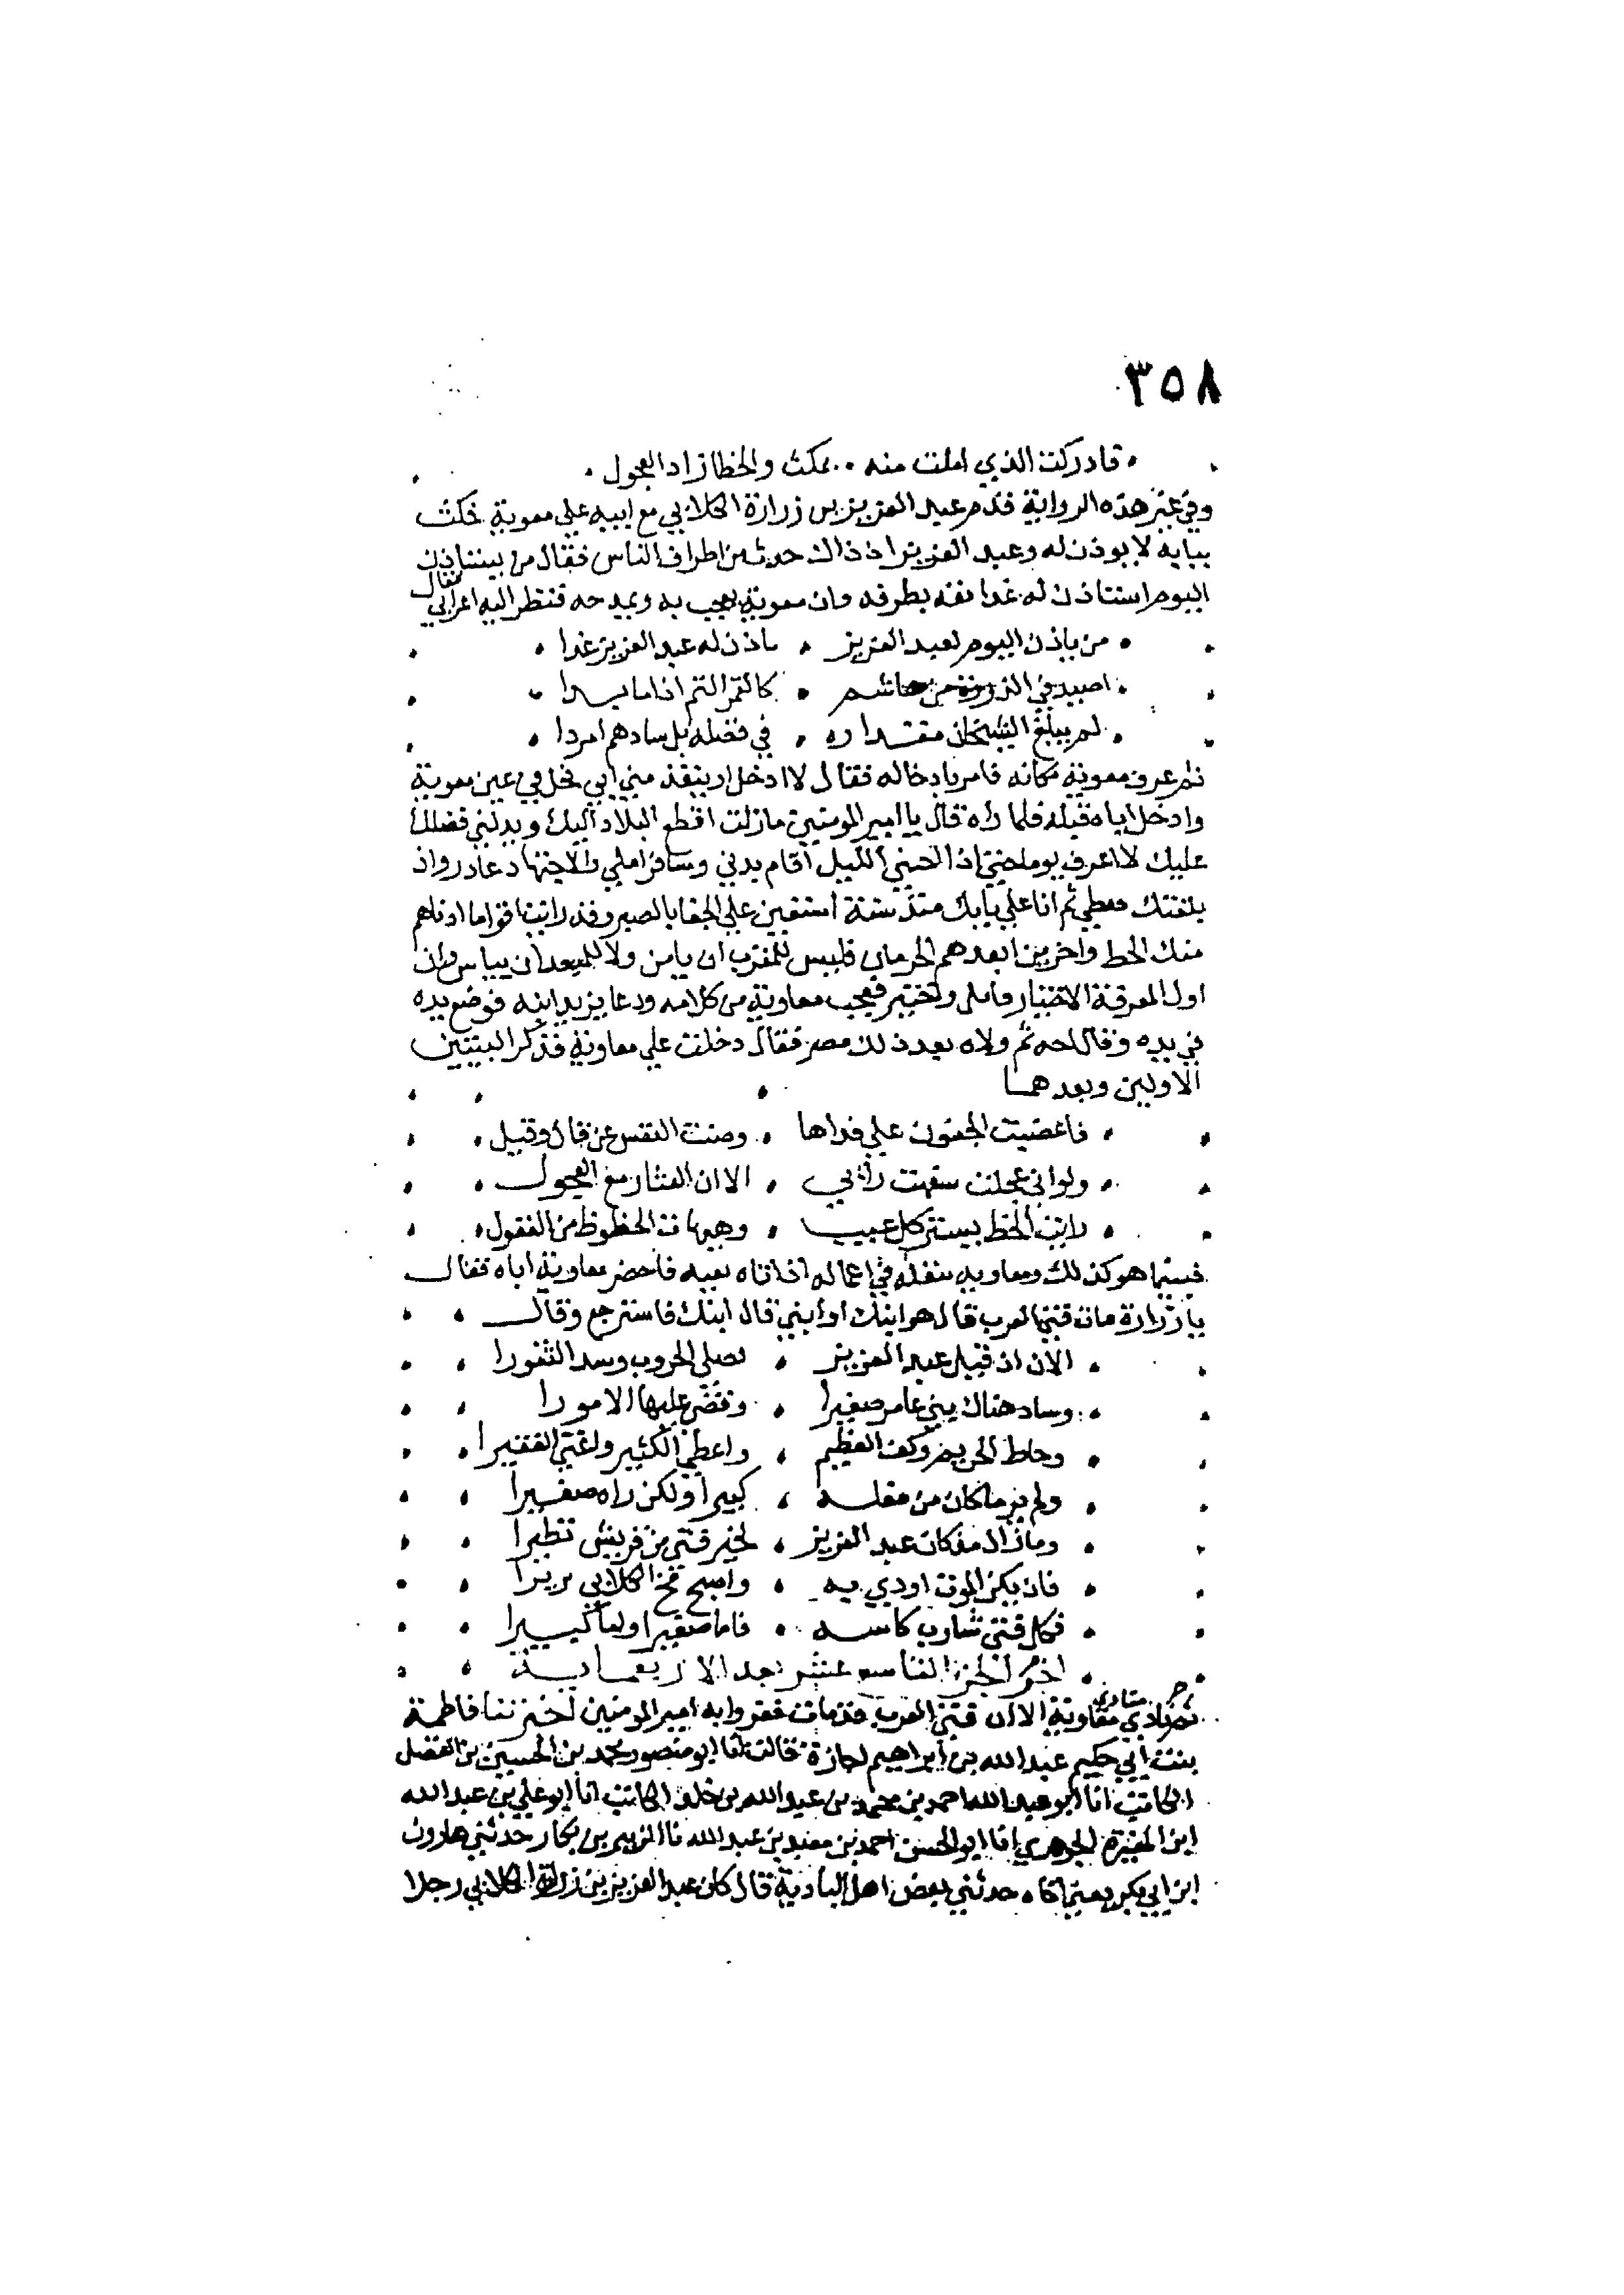 ٣٥٨
فادركت الذي املت منه بمكث والخطا زاد العجول
وفي غير هذه الرواية قدم عبد العزيز بن زرارة الكلابي مع ابيه علي معوية فمكث
ببابه لا يوذن له وعبد العزيز اذ ذاك حدث من اطراف الناس فقال من يستاذن
اليوم استاذن له غدا بطرفه وان معوية به ويمدحه فنظر اليه اعرابي فقال
من ياذن اليوم لعبد العزيز ياذن له عبد العزيز غدا
اصيد في الذروة من هاشم كالقمر التم اذا ما بدا
لم يبلغ الشيخان مقداره في فضله بل سادهم امردا
ثم عرف معوية مكانه فامر بادخاله فقال لا ادخل او ينفذ مني ابي فحل في عين معوية
وادخل اباه قبله فلما راه قال يا امير المومنين مازلت اقطع البلاد اليك ويدلني فضلك
عليك لا اعرف يوما حتي اذا الليل اقام بدني وسافر املي والاجتهاد عاذر واذ
بلغتك ثم انا علي بابك منذ سنة استعين علي الجفا بالصبر وقد رايت اقواما ادناهم
منك الحظ واخرين ابعدهم الحرمان فليس للمقرب ان يامن ولا للمبعد ان يياس وان
اول المعرفة الاختبار فاملي وتختبر فعجب معاوية من كلامه ودعا يزيد ابنه فوضع يده
في يده وقال ثم ولاه بعد ذلك مصر فقال دخلت علي معاوية فذكر البيتين
الاولين وبعدهما
فاغضيت الجفون علي قذاها وصنت النفس عن قال وقيل
ولو اني عجلت سفهت رايي الا ان العثار مع العجول
رايت الحظ يستر كل عيب وهيهات الحظوظ من العقول
فبينما هو كذلك ومعاويه ينقله في اعماله اذ اتاه نعيه فاحضر معاوية اباه فقال
يا زرارة مات فتي العرب قال هو ابنك او ابني قال ابنك فاسترجع وقال
الان اذ قيل عبد العزيز تصلي الحروب وسد الثغورا
وساد هناك بني عامر صغيرا وقضي عليها الامورا
وحاط الحريم وكف العظيم واعطي الكثير واغني الفقيرا
ولم ير ما كان من مقله كبيرا ولكن راه صغيرا
وما زال مذ كان عبد العزيز لخير فتي من قريش نظيرا
فان يكن الموت اودي به واصبح مخ الكلابي ريرا
فكل فتي شارب كاسه فاما صغيرا واما كبيرا
اخر الجز التاسع عشر بعد الاربعماية
منادي معاوية الا ان فتي العرب قد مات فعزوا به امير المومنين اخبرتنا فاطمة
بنت ابي حكيم عبد الله بن ابراهيم اجازة قالت انا ابو منصور محمد بن الحسين بن الفضل
الكاتب انا ابو عبد الله احمد بن محمد بن عبد الله بن خلف الكاتب انا ابو علي بن عبد الله
ابن المغيرة الجوهري انا ابو الحسن احمد بن معبد بن عبد الله نا الزبير بن بكار حدثني هارون
ابن ابي بكر حدثني بعض اهل البادية قال كان عبد العزيز بن زرارة الكلابي رجلا